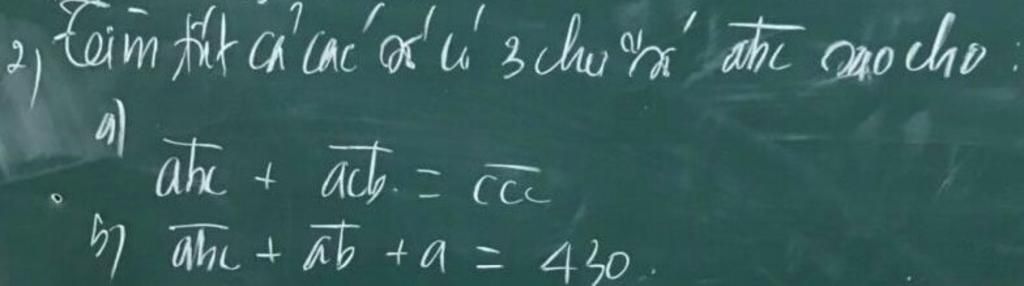 2) Tìm tất cả các số có 3 chữ số \overline{abc} sao cho :
a)
\overline{abc} + \overline{acb} = \overline{ccc}
b) \overline{abc} + \overline{ab} + a = 430.